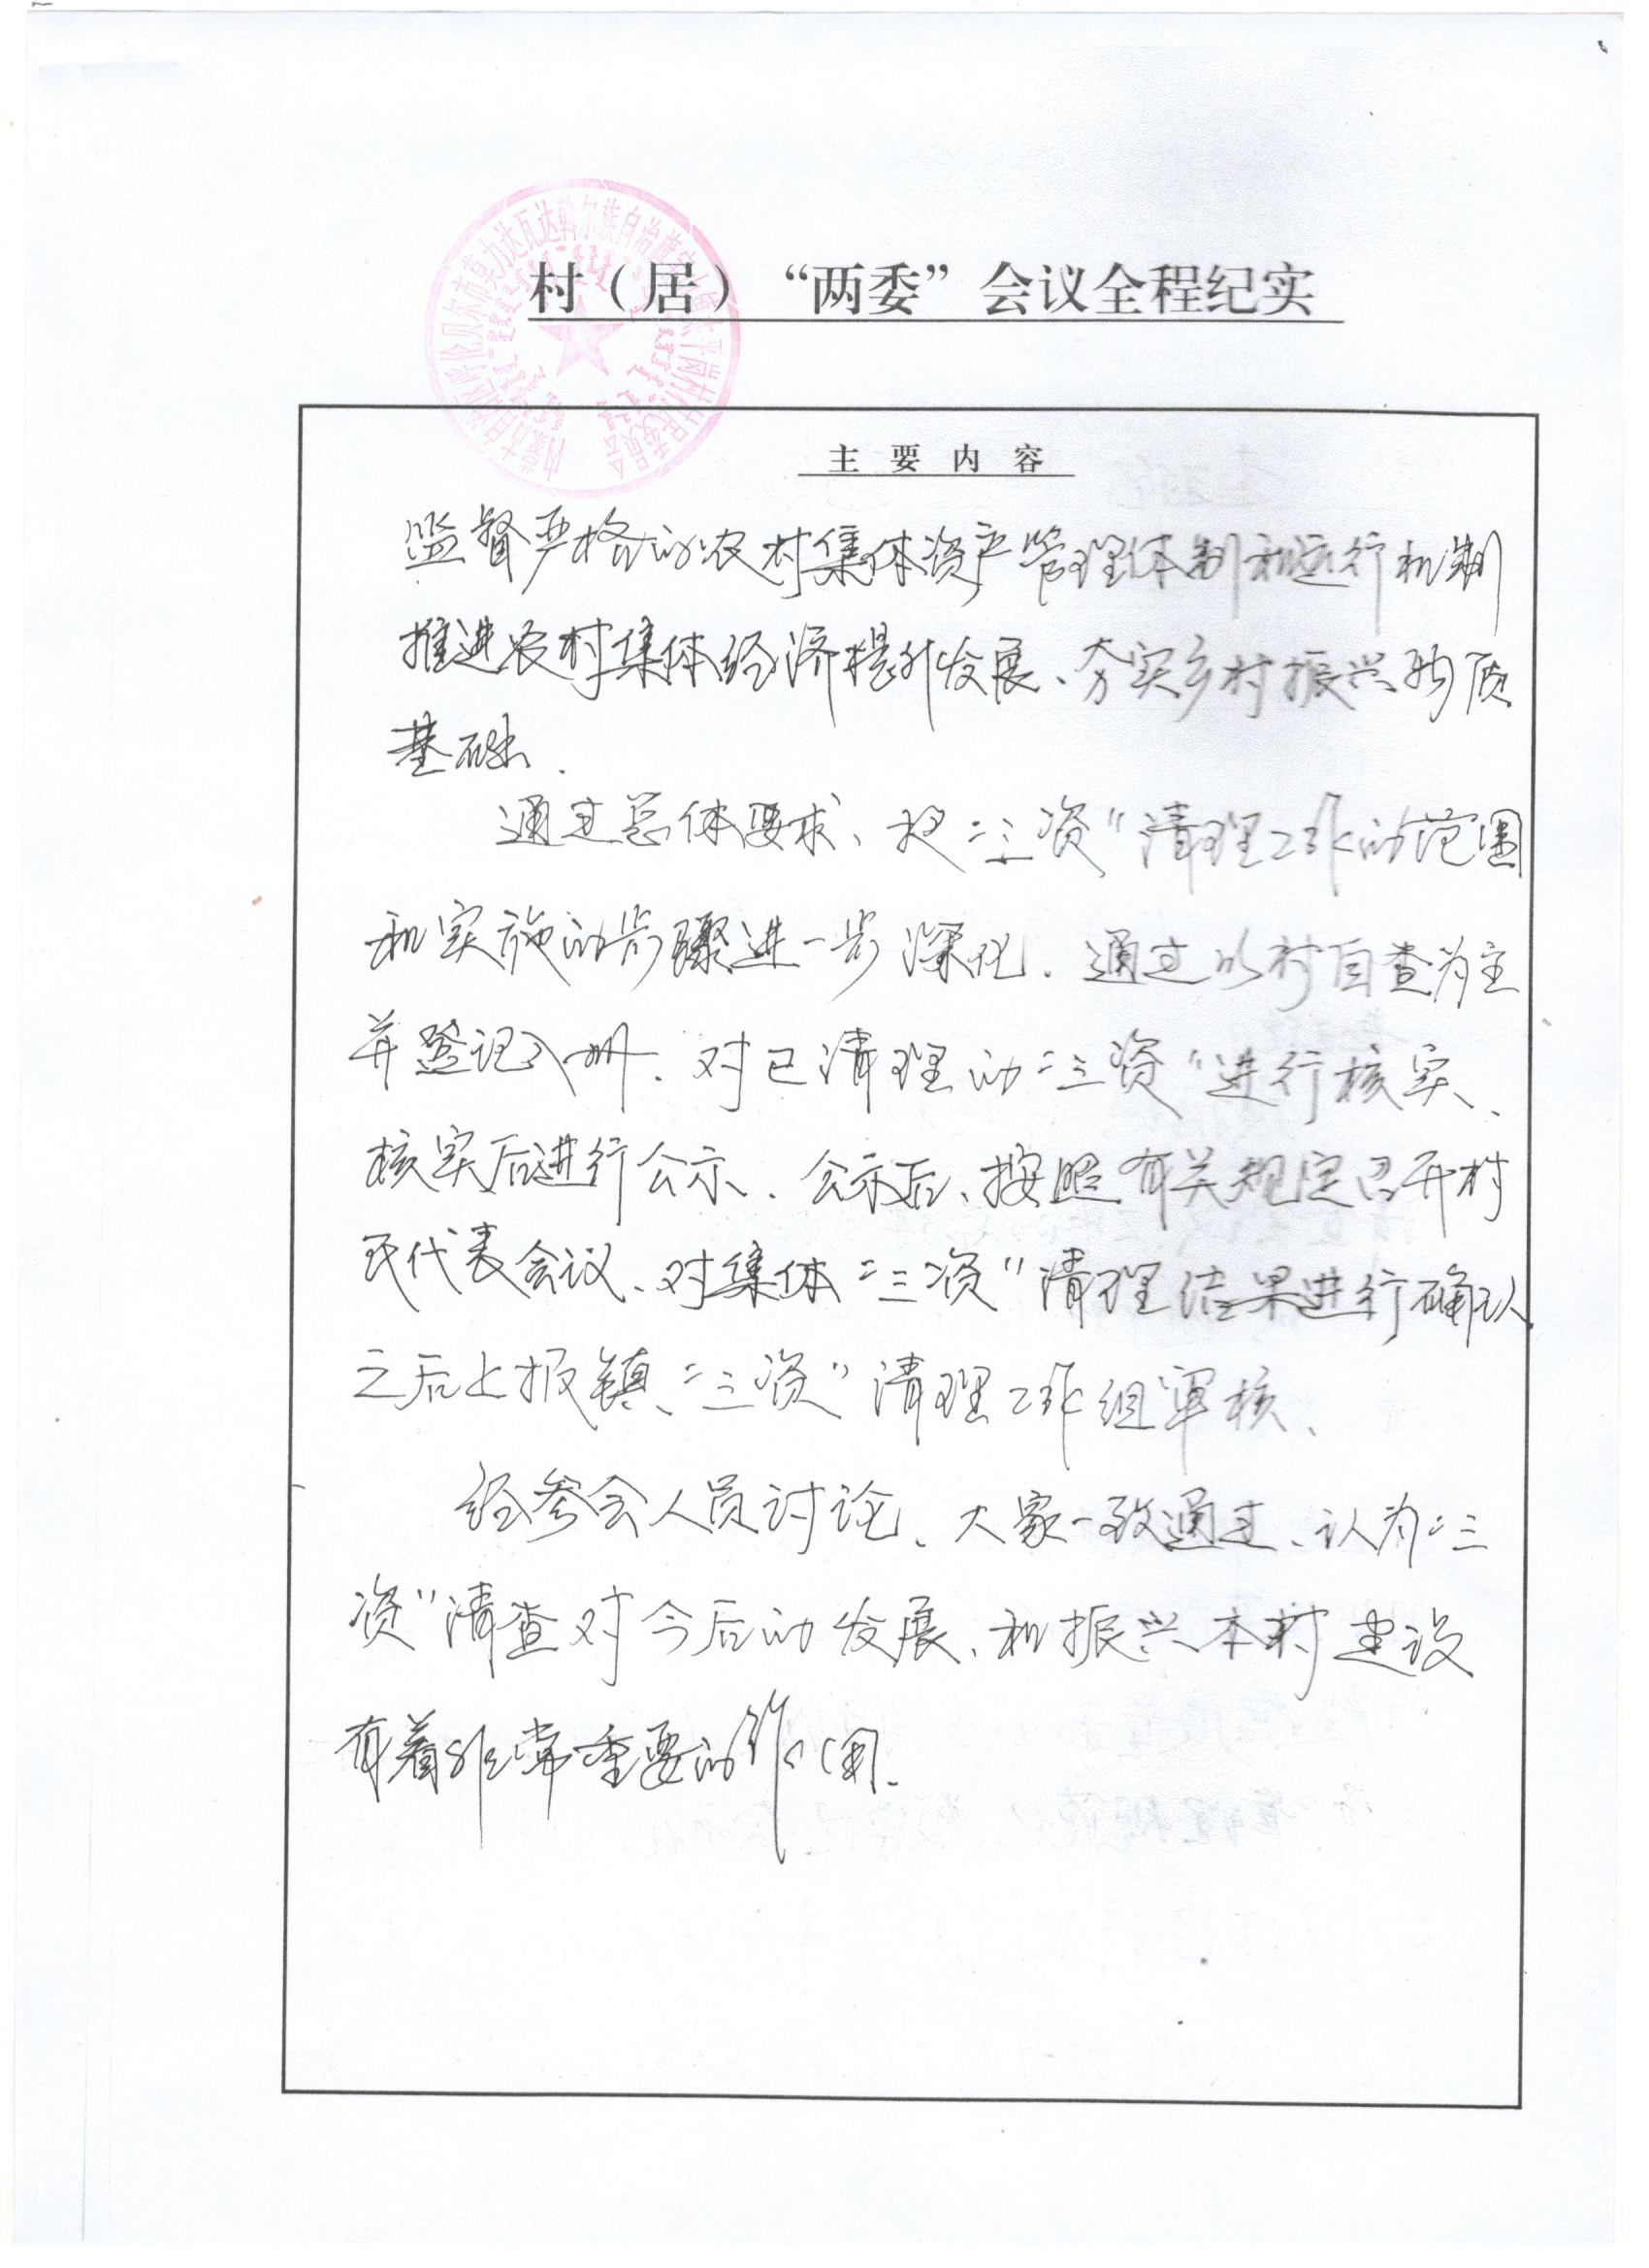 村（居）“两委”会议全程纪实
主要内容
监督严格的农村集体资产管理体制和运行机制
推进农村集体经济提升发展、夯实乡村振兴物质
基础.
通过总体要求、把“三资”清理工作的范围
和实施的步骤进一步深化. 通过以村自查为主
并登记入册. 对已清理的“三资”进行核实、
核实后进行公示. 公示后、按照有关规定召开村
民代表会议、对集体“三资”清理结果进行确认.
之后上报镇“三资”清理工作组审核、
经参会人员讨论. 大家一致通过、认为“三
资”清查对今后的发展、和振兴本村建设
有着非常重要的作用.